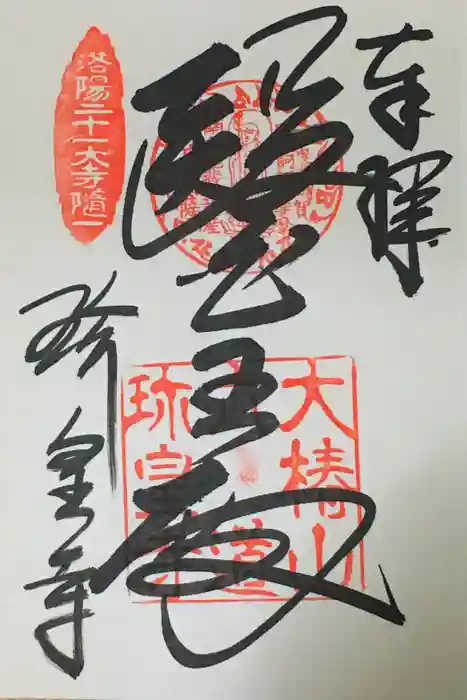 奉拝
醫王殿
珍皇寺
洛陽二十一大寺隨一
大椿山
六道
珎皇寺